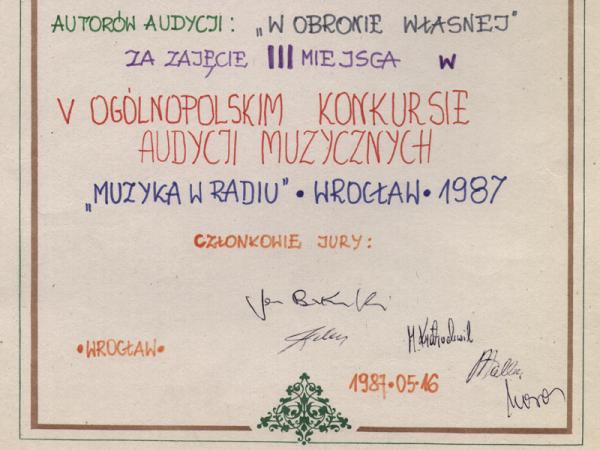 AUTORÓW AUDYCJI: „W OBRONIE WŁASNEJ"
ZA ZAJĘCIE III MIEJSCA W
V OGÓLNOPOLSKIM KONKURSIE
AUDYCJI MUZYCZNYCH
„MUZYKA W RADIU" • WROCŁAW • 1987
CZŁONKOWIE JURY:
•WROCŁAW•
1987•05•16